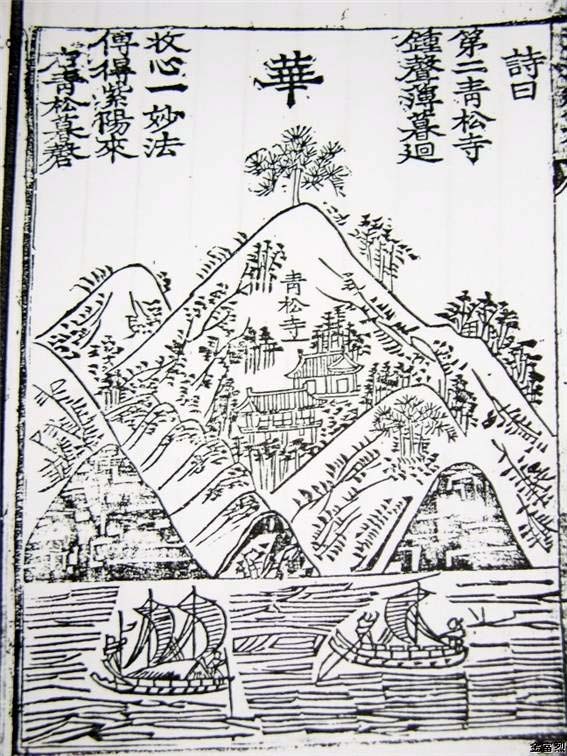 詩曰
第二青松寺
鍾聲薄暮廻
華
收心一妙法
傳得紫陽來
右青松暮磬
青松寺